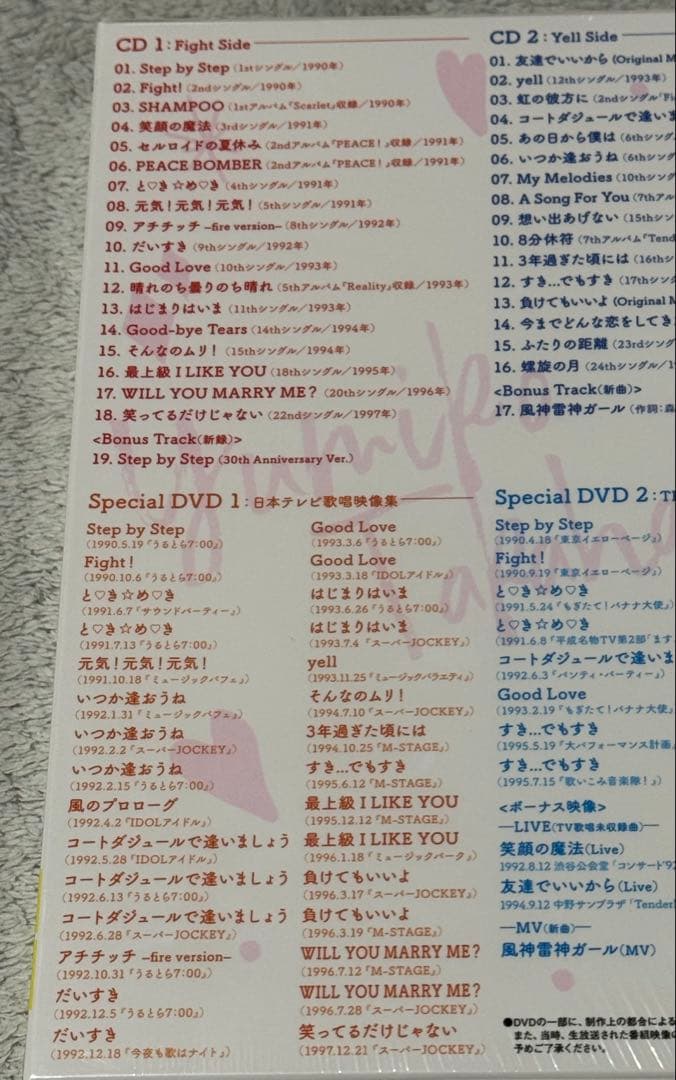 CD 1 : Fight Side
01. Step by Step (1stシングル／1990年)
02. Fight! (2ndシングル／1990年)
03. SHAMPOO (1stアルバム『Scarlet』収録／1990年)
04. 笑顔の魔法 (3rdシングル／1991年)
05. セルロイドの夏休み (2ndアルバム『PEACE!』収録／1991年)
06. PEACE BOMBER (2ndアルバム『PEACE!』収録／1991年)
07. と♡き☆め♡き (4thシングル／1991年)
08. 元気！元気！元気！ (5thシングル／1991年)
09. アチチッチ –fire version– (8thシングル／1992年)
10. だいすき (9thシングル／1992年)
11. Good Love (10thシングル／1993年)
12. 晴れのち曇りのち晴れ (5thアルバム『Reality』収録／1993年)
13. はじまりはいま (11thシングル／1993年)
14. Good-bye Tears (14thシングル／1994年)
15. そんなのムリ！ (15thシングル／1994年)
16. 最上級 I LIKE YOU (18thシングル／1995年)
17. WILL YOU MARRY ME? (20thシングル／1996年)
18. 笑ってるだけじゃない (22ndシングル／1997年)
<Bonus Track(新録)>
19. Step by Step (30th Anniversary Ver.)
CD 2 : Yell Side
01. 友達でいいから (Original M
02. yell (12thシングル／1993年)
03. 虹の彼方に (2ndシングル「Fi
04. コートダジュールで逢いま
05. あの日から僕は (6thシング
06. いつか逢おうね (6thシング
07. My Melodies (10thシング
08. A Song For You (7thアル
09. 想い出あげない (15thシン
10. 8分休符 (7thアルバム『Tend
11. 3年過ぎた頃には (16thシ
12. すき…でもすき (17thシン
13. 負けてもいいよ (Original M
14. 今までどんな恋をしてき
15. ふたりの距離 (23rdシング
16. 螺旋の月 (24thシングル／1
<Bonus Track(新曲)>
17. 風神雷神ガール (作詞：森
Special DVD 1 : 日本テレビ歌唱映像集
Step by Step
(1990.5.19『うるとら7:00』)
Fight!
(1990.10.6『うるとら7:00』)
と♡き☆め♡き
(1991.6.7『サウンドパーティー』)
と♡き☆め♡き
(1991.7.13『うるとら7:00』)
元気！元気！元気！
(1991.10.18『ミュージックパフェ』)
いつか逢おうね
(1992.1.31『ミュージックパフェ』)
いつか逢おうね
(1992.2.2『スーパーJOCKEY』)
いつか逢おうね
(1992.2.15『うるとら7:00』)
風のプロローグ
(1992.4.2『IDOLアイドル』)
コートダジュールで逢いましょう
(1992.5.28『IDOLアイドル』)
コートダジュールで逢いましょう
(1992.6.13『うるとら7:00』)
コートダジュールで逢いましょう
(1992.6.28『スーパーJOCKEY』)
アチチッチ –fire version–
(1992.10.31『うるとら7:00』)
だいすき
(1992.12.5『うるとら7:00』)
だいすき
(1992.12.18『今夜も歌はナイト』)
Good Love
(1993.3.6『うるとら7:00』)
Good Love
(1993.3.18『IDOLアイドル』)
はじまりはいま
(1993.6.26『うるとら7:00』)
はじまりはいま
(1993.7.4『スーパーJOCKEY』)
yell
(1993.11.25『ミュージックバラエティ』)
そんなのムリ！
(1994.7.10『スーパーJOCKEY』)
3年過ぎた頃には
(1994.10.25『M-STAGE』)
すき…でもすき
(1995.6.12『M-STAGE』)
最上級 I LIKE YOU
(1995.12.12『M-STAGE』)
最上級 I LIKE YOU
(1996.1.18『ミュージックパーク』)
負けてもいいよ
(1996.3.17『スーパーJOCKEY』)
負けてもいいよ
(1996.3.19『M-STAGE』)
WILL YOU MARRY ME?
(1996.7.12『M-STAGE』)
WILL YOU MARRY ME?
(1996.7.28『スーパーJOCKEY』)
笑ってるだけじゃない
(1997.12.21『スーパーJOCKEY』)
Special DVD 2 : T
Step by Step
(1990.4.18『東京イエローページ』)
Fight!
(1990.9.19『東京イエローページ』)
と♡き☆め♡き
(1991.5.24『もぎたて！バナナ大使』)
と♡き☆め♡き
(1991.6.8『平成名物TV第2部「ます
コートダジュールで逢いま
(1992.6.3『パンティ・パーティー』)
Good Love
(1993.2.19『もぎたて！バナナ大使』
すき…でもすき
(1995.5.19『大パフォーマンス計画』
すき…でもすき
(1995.7.15『歌いこみ音楽隊！』)
<ボーナス映像>
—LIVE(TV歌唱未収録曲)—
笑顔の魔法(Live)
1992.8.12 渋谷公会堂「コンサート'92
友達でいいから(Live)
1994.9.12 中野サンプラザ「Tender
—MV(新曲)—
風神雷神ガール(MV)
●DVDの一部に、制作上の都合による
また、当時、生放送された番組映像の
予めご了承ください。
Yumiko
Taka